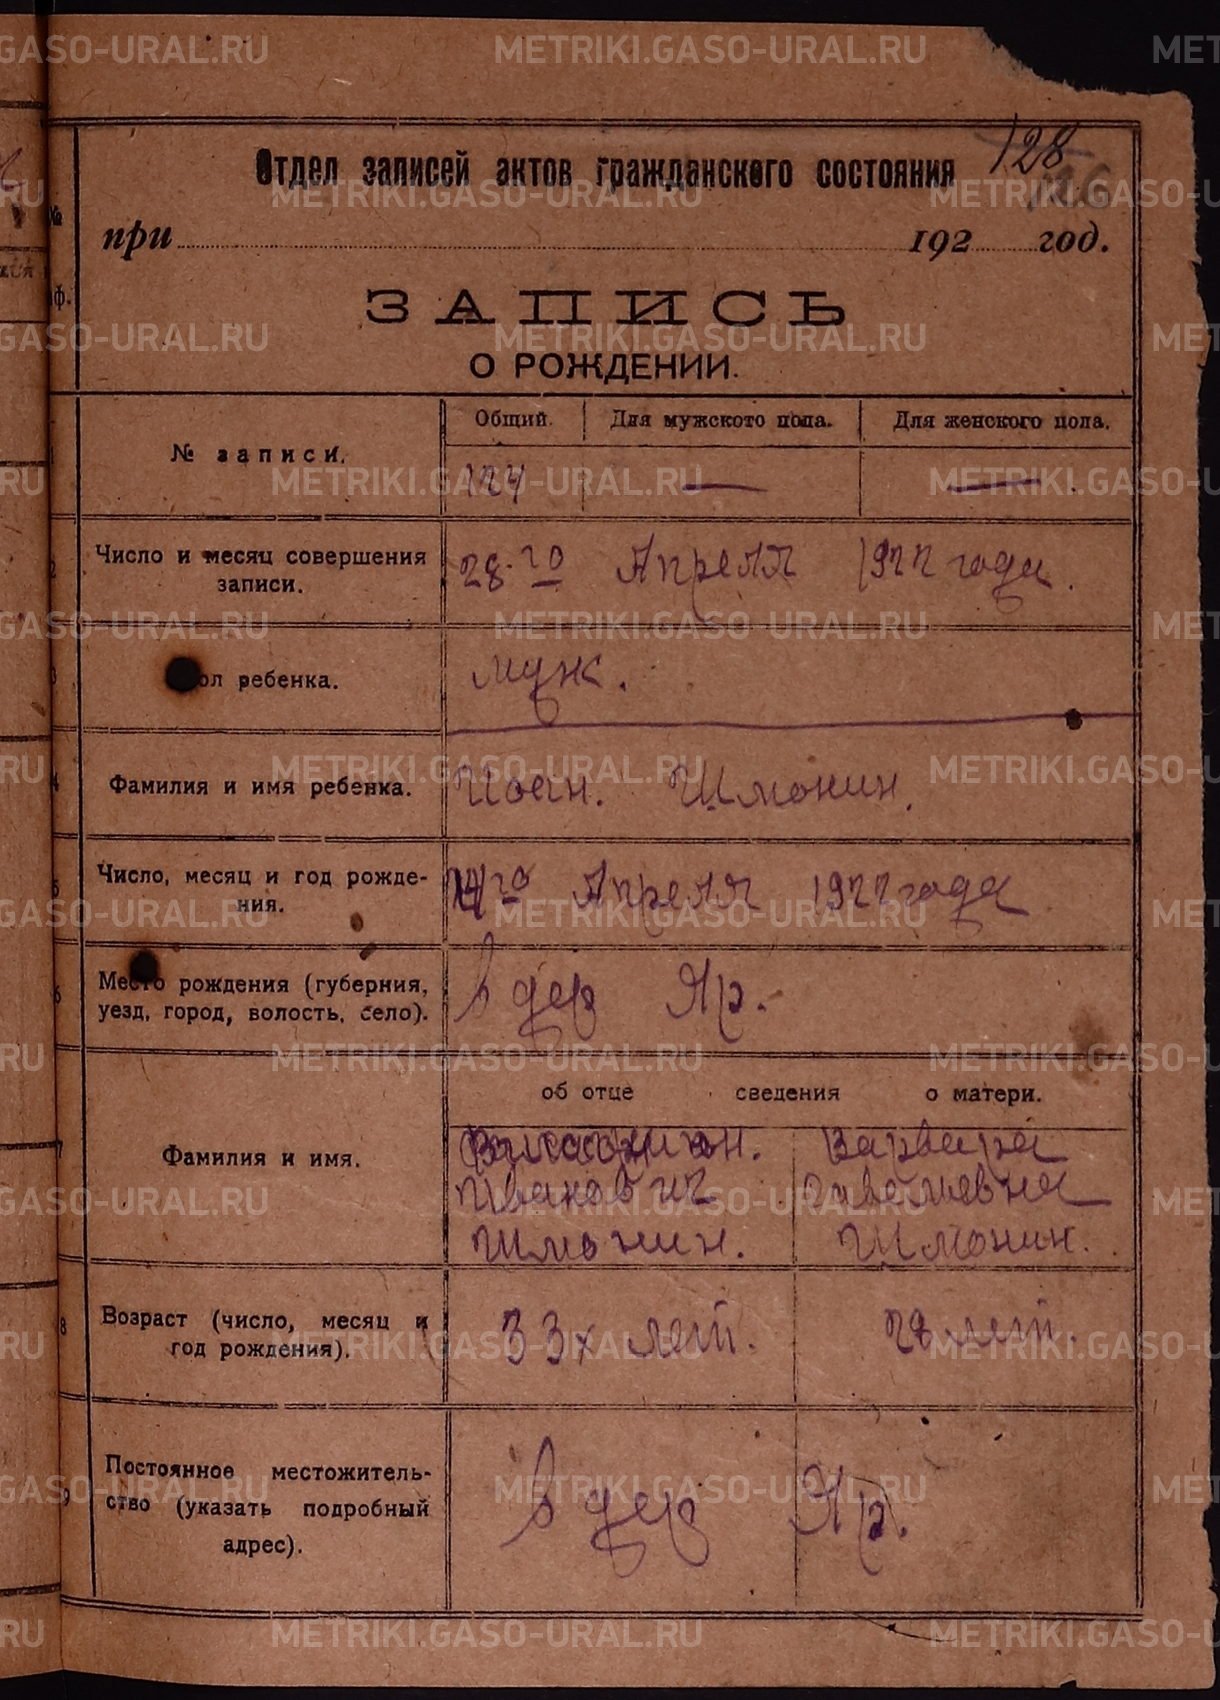 128
126
Отдел записей актов гражданского состояния
при 192 год.
ЗАПИСЬ
О РОЖДЕНИИ.
№ записи.
Общий. Для мужского пола. Для женского пола.
124 — —
Число и месяц совершения записи.
28-го Апреля 1922 года.
Пол ребенка.
муж.
Фамилия и имя ребенка.
Иоан. Шмонин.
Число, месяц и год рожде-
ния.
14го Апреля 1922 года
Место рождения (губерния,
уезд, город, волость, село).
в дер Яр.
об отце сведения о матери.
Фамилия и имя.
Варвара
Иванович Савельевна
Шмонин. Шмонин.
Возраст (число, месяц и
год рождения).
33х лет. 28 лет.
Постоянное местожитель-
ство (указать подробный
адрес).
в дер Яр.
METRIKI.GASO-URAL.RU